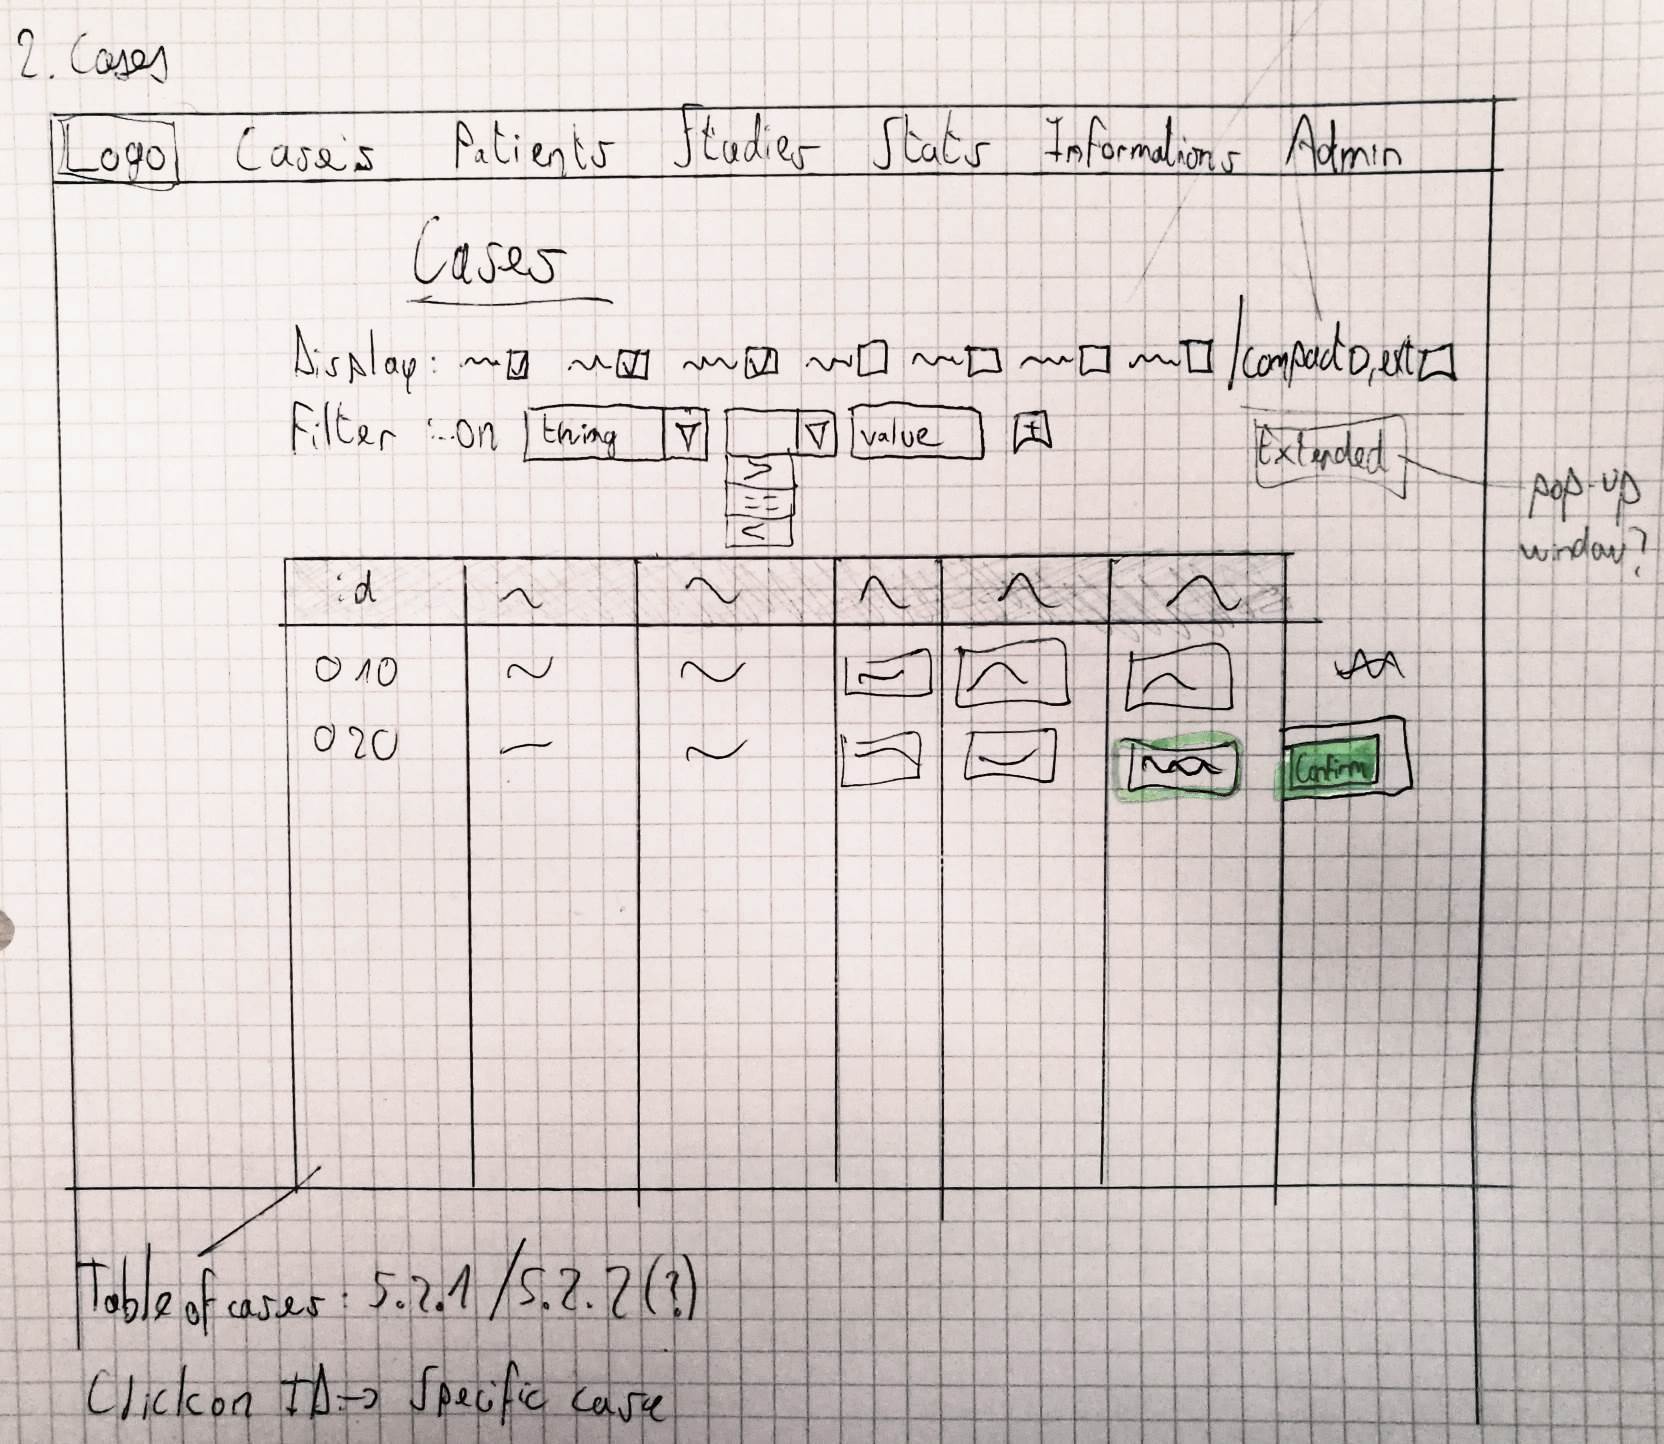 2. Cases
Logo Cases Patients Studies Stats Informations Admin
Cases
Display: / compact, ext
Filter :..on thing value +
>
=
<
Extended
pop-up
window?
id
010
020
Confirm
Table of cases: 5.2.1 / 5.2.2 (?)
Click on ID -> Specific case